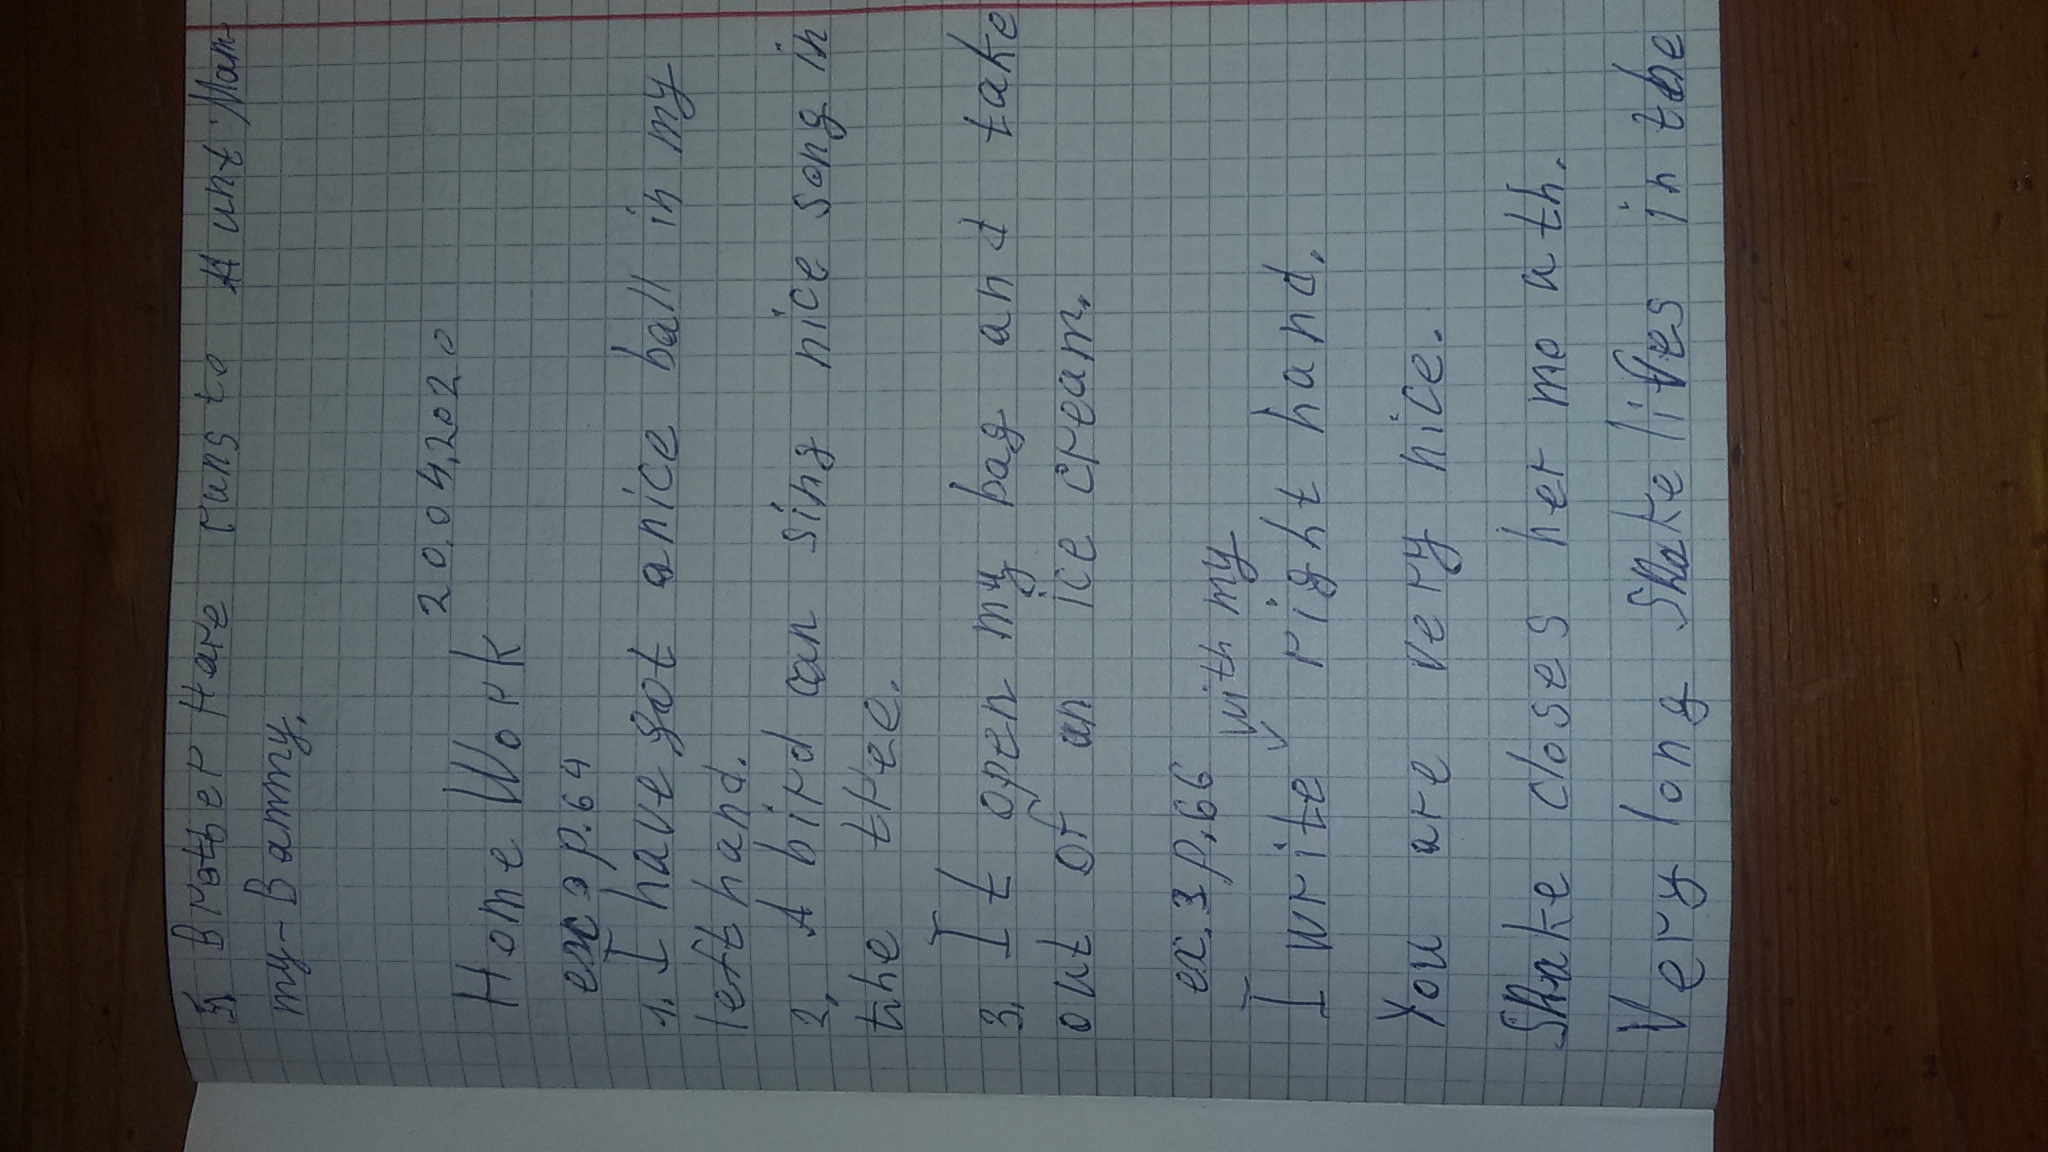 5. Brother Hare runs to Aunt Mam-
my-Bammy.
20.04.2020
Home Work
ex 3 p.64
1. I have got a nice ball in my
left hand.
2. A bird can sing nice song in
the tree.
3. It open my bag and take
out of an ice cream.
ex. 3 p. 66
with my
I write right hand.
You are very nice.
Snake closes her mo uth.
Very long Snake lives in the